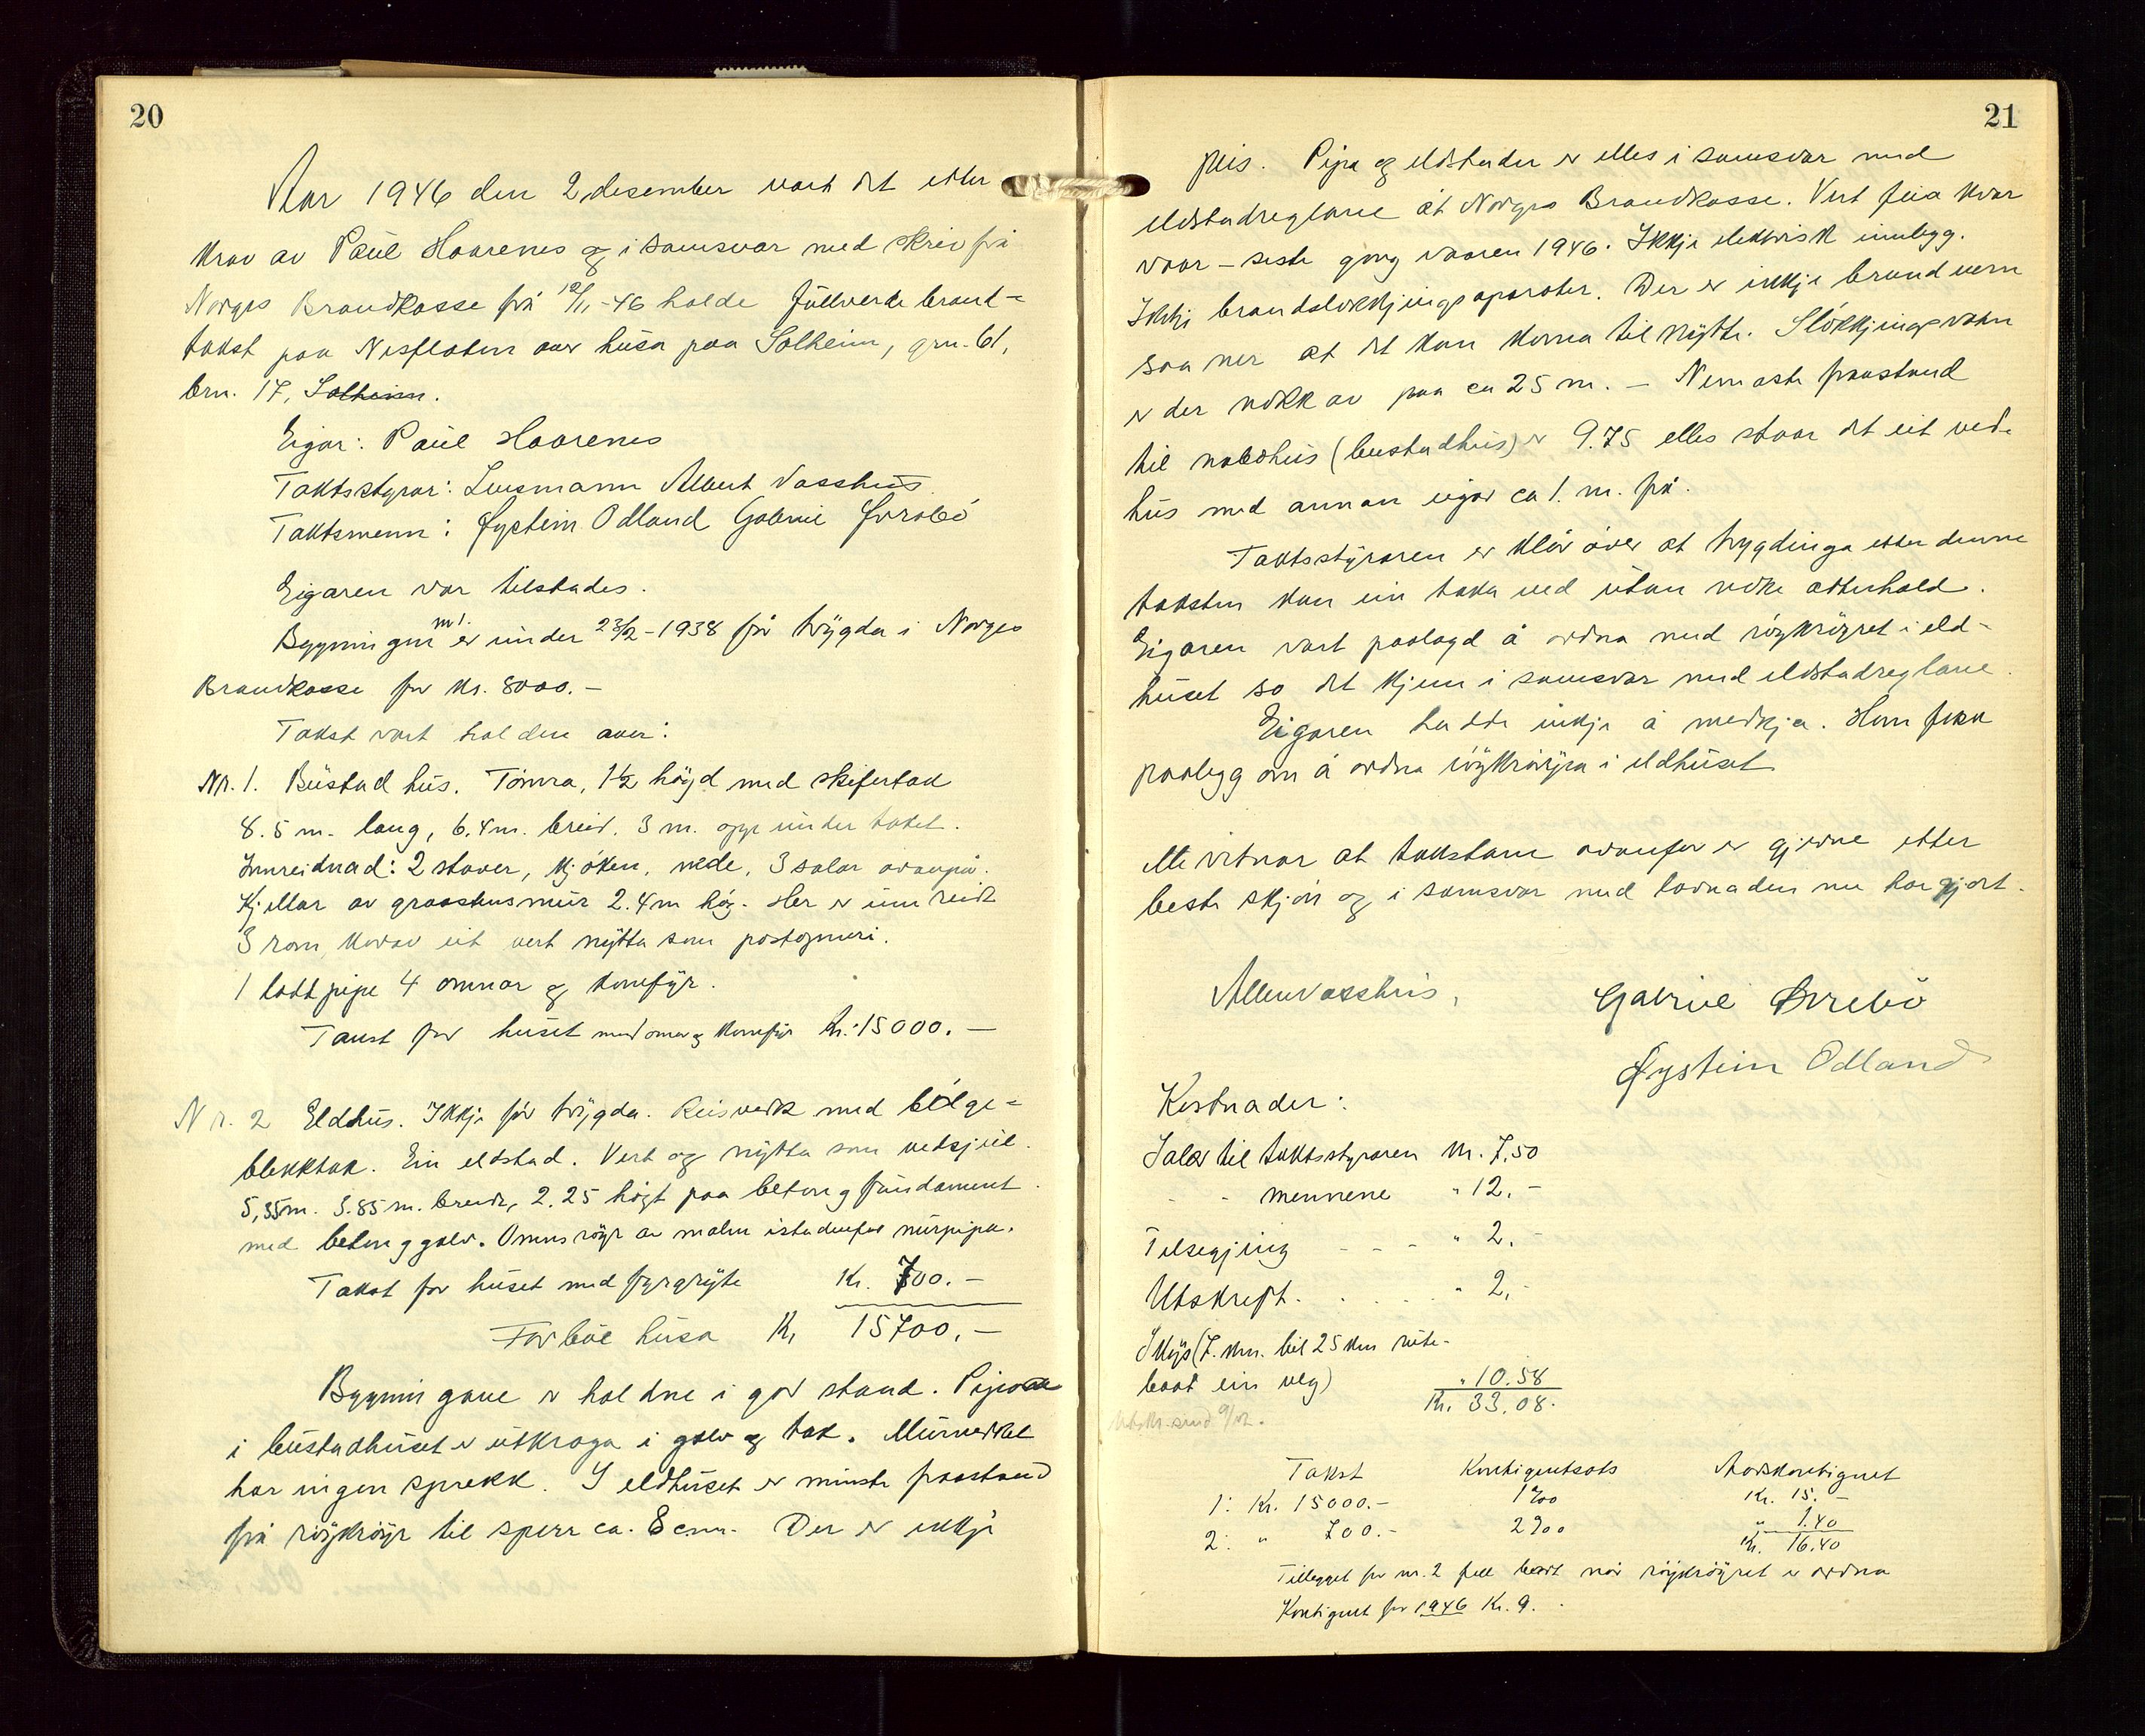 20
Aar 1946 den 2 desember vart det etter
krav av Paul Haarenes og i samsvar med skriv frå
Norges Brandkasse frå 12/11-46 halde fullverde brant-
takst paa Nesflaten over husa paa Solheim, grn. 61,
brn. 17, Solheim.
Eigar: Paul Haarenes
Taktsstyrar: Lensmann Albert Vasshus
Taktsmenn: Øystein Odland Gabriel Ørrebö
Eigaren var tilstades.
Bygningen nr 1. er under 23/2-1938 för trygda i Norges
Brandkasse for kr. 8000.-
Takst vart halden over:
Nr. 1. Bustad hus. Tömra, 1½ högd med skifertak
8.5 m. lang, 6.4 m. breid. 3 m. opp under taket.
Innreidnad: 2 stover, kjöken, nede, 3 salar ovanpå.
Kjellar av graasteinsmur 2.4 m hög. Her er innreidt
3 rom, korav eit vert nytta som postopneri.
1 loddpipe 4 omnar og komfyr.
Takst for huset med omn og komfyr Kr. 15000.-
Nr. 2 Eldhus. Ikkje för trygda. Reisverk med bölge-
blekktak. Ein eldstad. Vert og nytta som vedsjul.
5,55 m. 3.85 m. breidt, 2.25 högt paa betong fundament
med betonggolv. Omnsröyr av malm istadenfor murpipa.
Takst for huset med fyrgryte Kr. 700.-
For baë husa Kr. 15700.-
Bygningane er haldne i god stand. Pipa
i bustadhuset er utkraga i golv og tak. Murverket
har ingen sprekk. I eldhuset er minste fraastand
frå röykröyr til sperr ca. 8 cm. Der er ikkje
21
peis. Pipa og eldstader er elles i samsvar med
eldstadreglane åt Norges Brandkasse. Vert feia kvar
vaar - siste gong vaaren 1946. Ikkje elektrisk innlegg.
Ikkje brandslökkjingsaparater. Der er ikkje brandvern
saa ner at det kan koma til nytte. Slökkjingsvatn
er der nokk av paa ca 25 m. - Nemaste fraastand
til nabohus (bustadhus) er 9.75 elles staar det eit ved-
hus med annan eigar ca 1. m. frå.
Taktsstyraren er klår över at trygdinga etter denne
taksten kan ein taka ved utan noke atterhald.
Eigaren vart paalagd å ordna med röykröyret i eld-
huset so det kjem i samsvar med eldstadreglane.
Eigaren hadde inkje å merkja. Han fekk
paalegg om å ordna röykröyra i eldhuset
Me vitnar at takstane ovanfor er gjevne etter
beste skjön og i samsvar med lovnaden me har gjort.
Albert Vasshus,
Gabriel Ørrebö
Øystein Odland
Kostnader:
Salær til taktsstyraren kr. 7,50
- - mennene " 12.-
Tilsegjing - - - " 2.-
Utskrift. . . . . " 2,-
Skyss (7. km. bil 25 km rute-
baat ein veg) " 10.58
Kr. 33,08.
Utskr. send 9/12.
Takst Kontigentsats Aarskontigent
1: Kr. 15000.- 1‰ Kr. 15.-
2: " 700.- 2‰ " 1.40
Kr. 16.40
Tillegget for nr. 2 fell bort når röykröyret er ordna
Kontigent for 1946 Kr. 9.